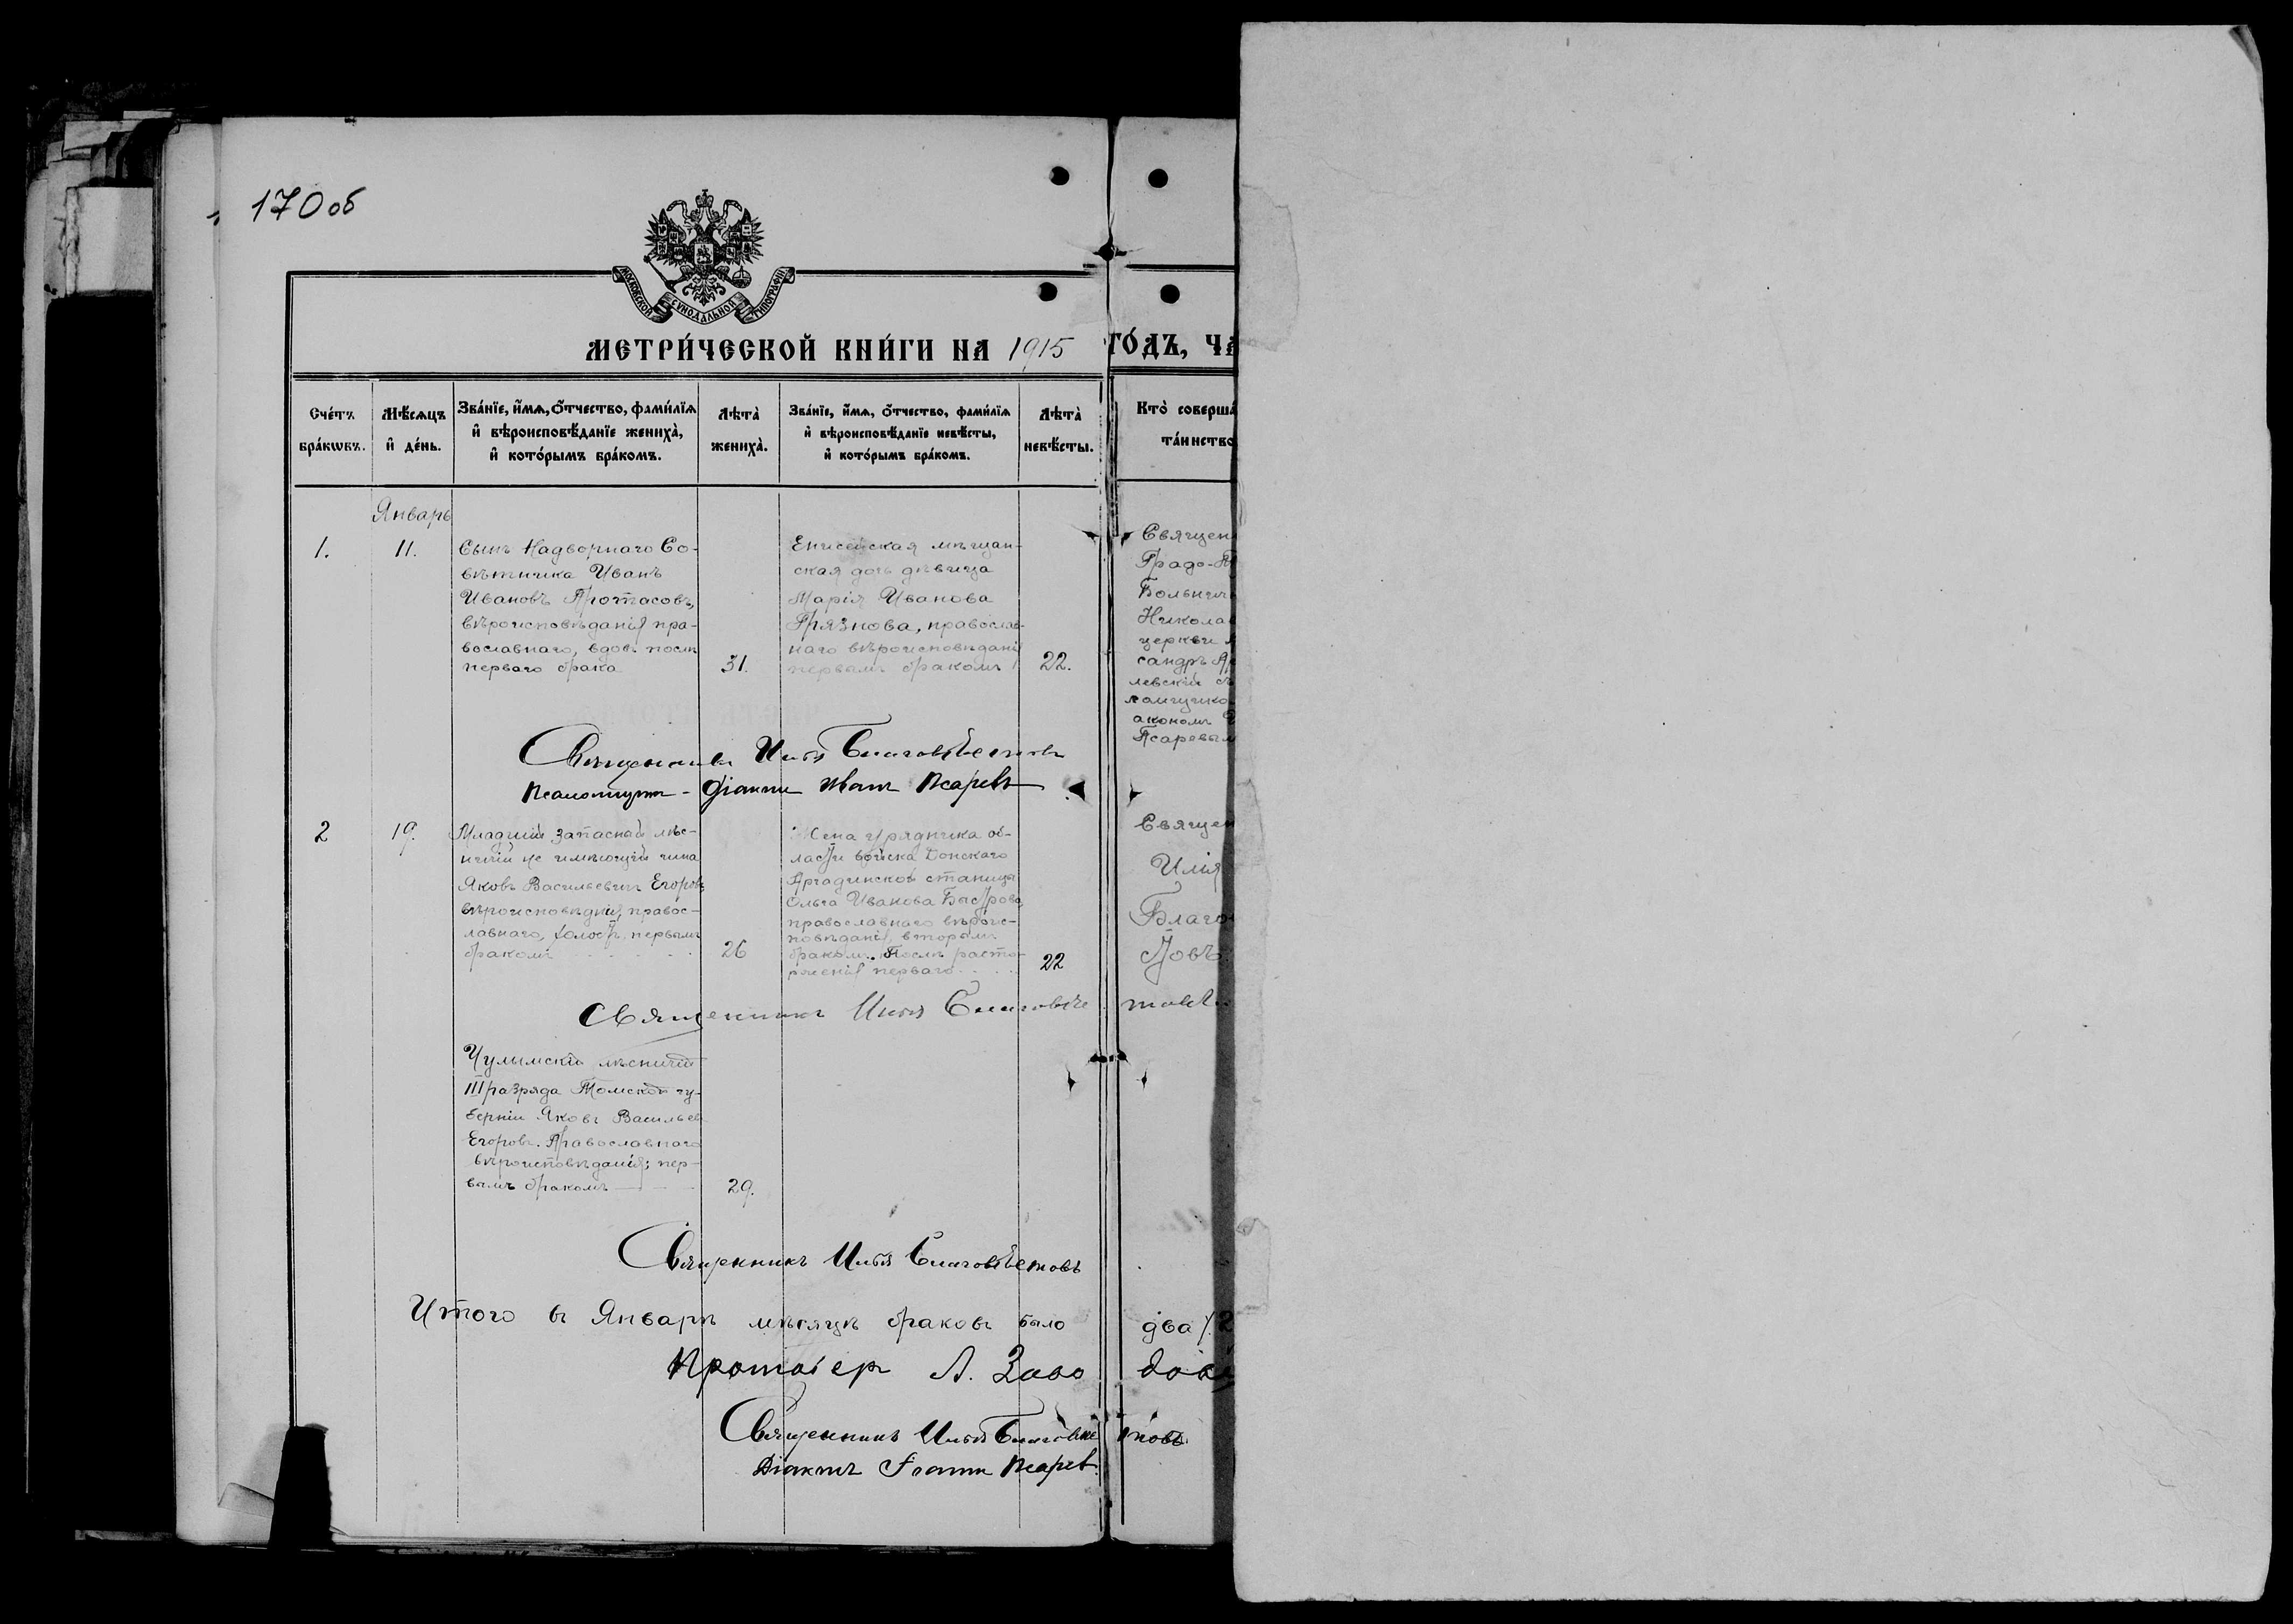 170 об
МОСКОВСКОЙ СѴНОДАЛЬНОЙ ТИПОГРАФІИ
МЕТРИ́ЧЕСКОЙ КНИ́ГИ НА 1915 ГО́ДЪ, ЧА
Сче́тъ бра́кѡвъ.
Мѣ́сѧцъ и҆ де́нь.
Зва́нїе, и҆́мѧ, ѻ҆́тчество, фами́лїѧ
и҆ вѣроисповѣ́данїе жениха̀,
и҆ кото́рымъ бра́комъ.
Лѣта̀ жениха̀.
Зва́нїе, и҆́мѧ, ѻ҆́тчество, фами́лїѧ
и҆ вѣроисповѣ́данїе невѣ́сты,
и҆ кото́рымъ бра́комъ.
Лѣта̀ невѣ́сты.
Кто̀ соверша
та́инство
Январь
1.
11.
Сынъ Надворнаго Со-
вѣтника Иванъ
Ивановъ Протасовъ,
вѣроисповѣданія пра-
вославнаго, вдовъ послѣ
перваго брака
31.
Енисейская мѣщан-
ская дочь дѣвица
Марія Иванова
Грязнова, православ-
наго вѣроисповѣданія
первымъ бракомъ
22.
Священ
Градо-
Больнич
Никола
церкви
сандръ
левскій съ
аконом
Псаревым
Священникъ Илья Благовѣстовъ
Псаломщикъ - діаконъ Иванъ Псаревъ
2
19.
Младшій запасный лѣс-
ничій не имѣющій чина
Яковъ Васильевич Егоровъ
вѣроисповѣднія, правос-
лавнаго, холостъ, первымъ
бракомъ
26
Жена урядника об-
ласти войска Донскаго
Арчадинской станицы
Ольга Иванова Быстрова,
православнаго вѣроис-
повѣданія, вторымъ
бракомъ. Послѣ растор-
женія перваго
22
Священ
Илія
Благо
стовъ
Священникъ Илья Благовѣстовъ
Чулымскій лѣсничій
III разряда Томской гу-
берніи Яковъ Васильев
Егоровъ. Православнаго
вѣроисповѣданія; пер-
вымъ бракомъ
29.
Священникъ Илья Благовѣстовъ
Итого въ Январѣ мѣсяцѣ браковъ было два /2
Протоіер А. Заво
Священникъ Илья Благовѣстовъ
Діаконъ Іоаннъ Псарев